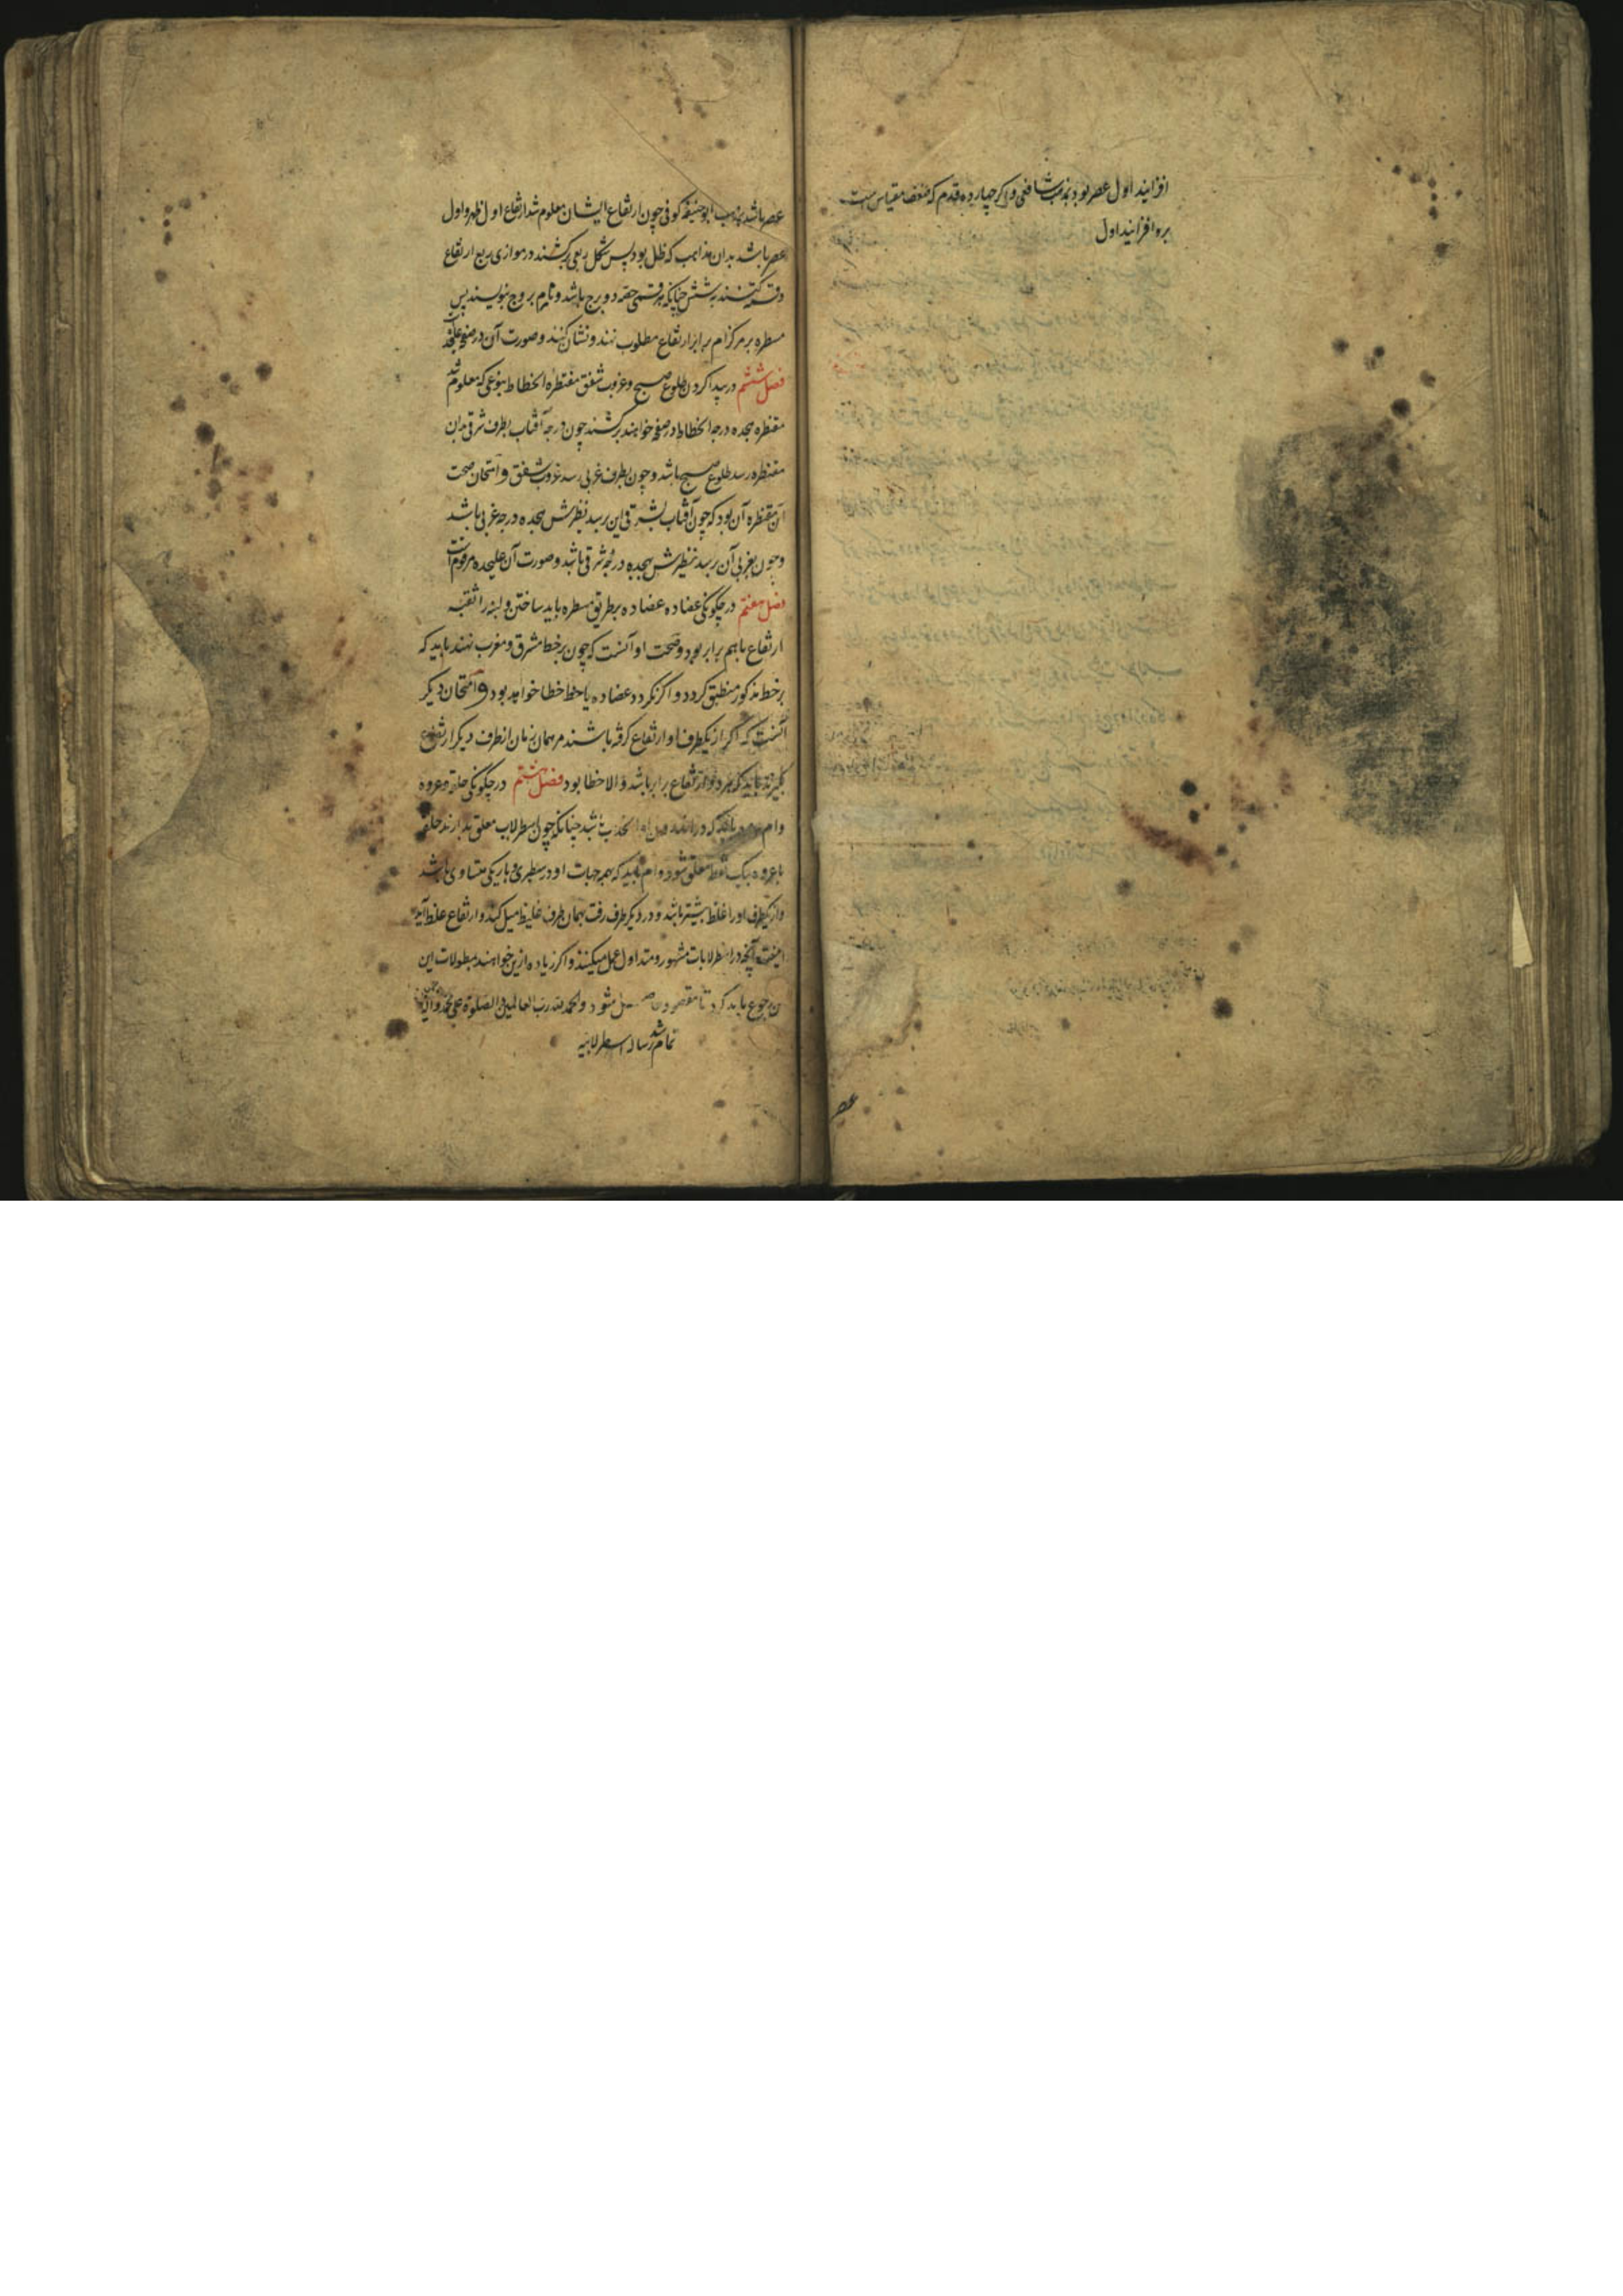 افزایند اول عصر بود بمذهب شافعی و اکر چهارده قدم که ضعف مقیاس است
بروافزایند اول
عصر
عصر باشد بمذهب ابوحنیفه کوفی چون ارتفاع ایشان معلوم شد ارتفاع اول ظهر و اول
عصر باشد بدان مذاهب که ظل بود پس شکل ربعی برکشند در موازی ربع ارتفاع
و قسمت کنند بشش چنانکه هر قسمی حصه دو برج باشد و نام بروج بنویسند پس
مسطره بر مرکز ام برابر ارتفاع مطلوب نهند و نشان کنند و صورت آن در صفحه
فصل ششم در پیدا کردن طلوع صبح و غروب شفق مقنطره انحطاط بنوعی که معلوم شد
مقنطره هجده درجه انحطاط در صفحه خواهند برکشند چون درجه آفتاب بطرف شرقی بدان
مقنطره رسد طلوع صبح باشد و چون بطرف غربی رسد غروب شفق و امتحان صحت
آن مقنطره آن بود که چون آفتاب بشرقی این رسد نظیرش هجده درجه غربی باشد
و چون بغربی آن رسد نظیرش هجده درجه شرقی باشد و صورت آن علیحده مرقوم است
فصل هفتم در چکونکی عضاده عضاده بر طریق مسطره باید ساختن و لبنه را ثقبه
ارتفاع باهم برابر بود و صحت او آنست که چون بر خط مشرق و مغرب نهند باید که
بر خط مذکور منطبق کردد و اکر نکردد عضاده یا خط خطا خواهد بود و امتحان دیکر
آنست که اکر از یکطرف او ارتفاع کرفه باشند در همان زمان از طرف دیکر ارتفاع
بکیرند باید که هر دو ارتفاع برابر باشد و الا خطا بود فصل هشتم در چکونکی حلقه و عروه
وام باید که در چنانکه چون اسطرلاب معلق بدارند حلقه
با عروه بیک نقطه معلق شود و ام باید که همه جهات او در سطبری و باریکی متساوی باشد
و از یکطرف او را غلظ بیشتر باشد و در دیکر طرف رقت بهمان طرف غلیظ میل کند و ارتفاع غلط آید
اینست آنچه در اسطرلابات مشهور و متداول عمل میکنند و اکر زیاده ازین خواهند بمطولات این
فن رجوع باید کرد تا مقصود حاصل شود والحمد لله رب العالمین والصلوة علی محمد وآله
تمام شد رساله اسطرلابیه